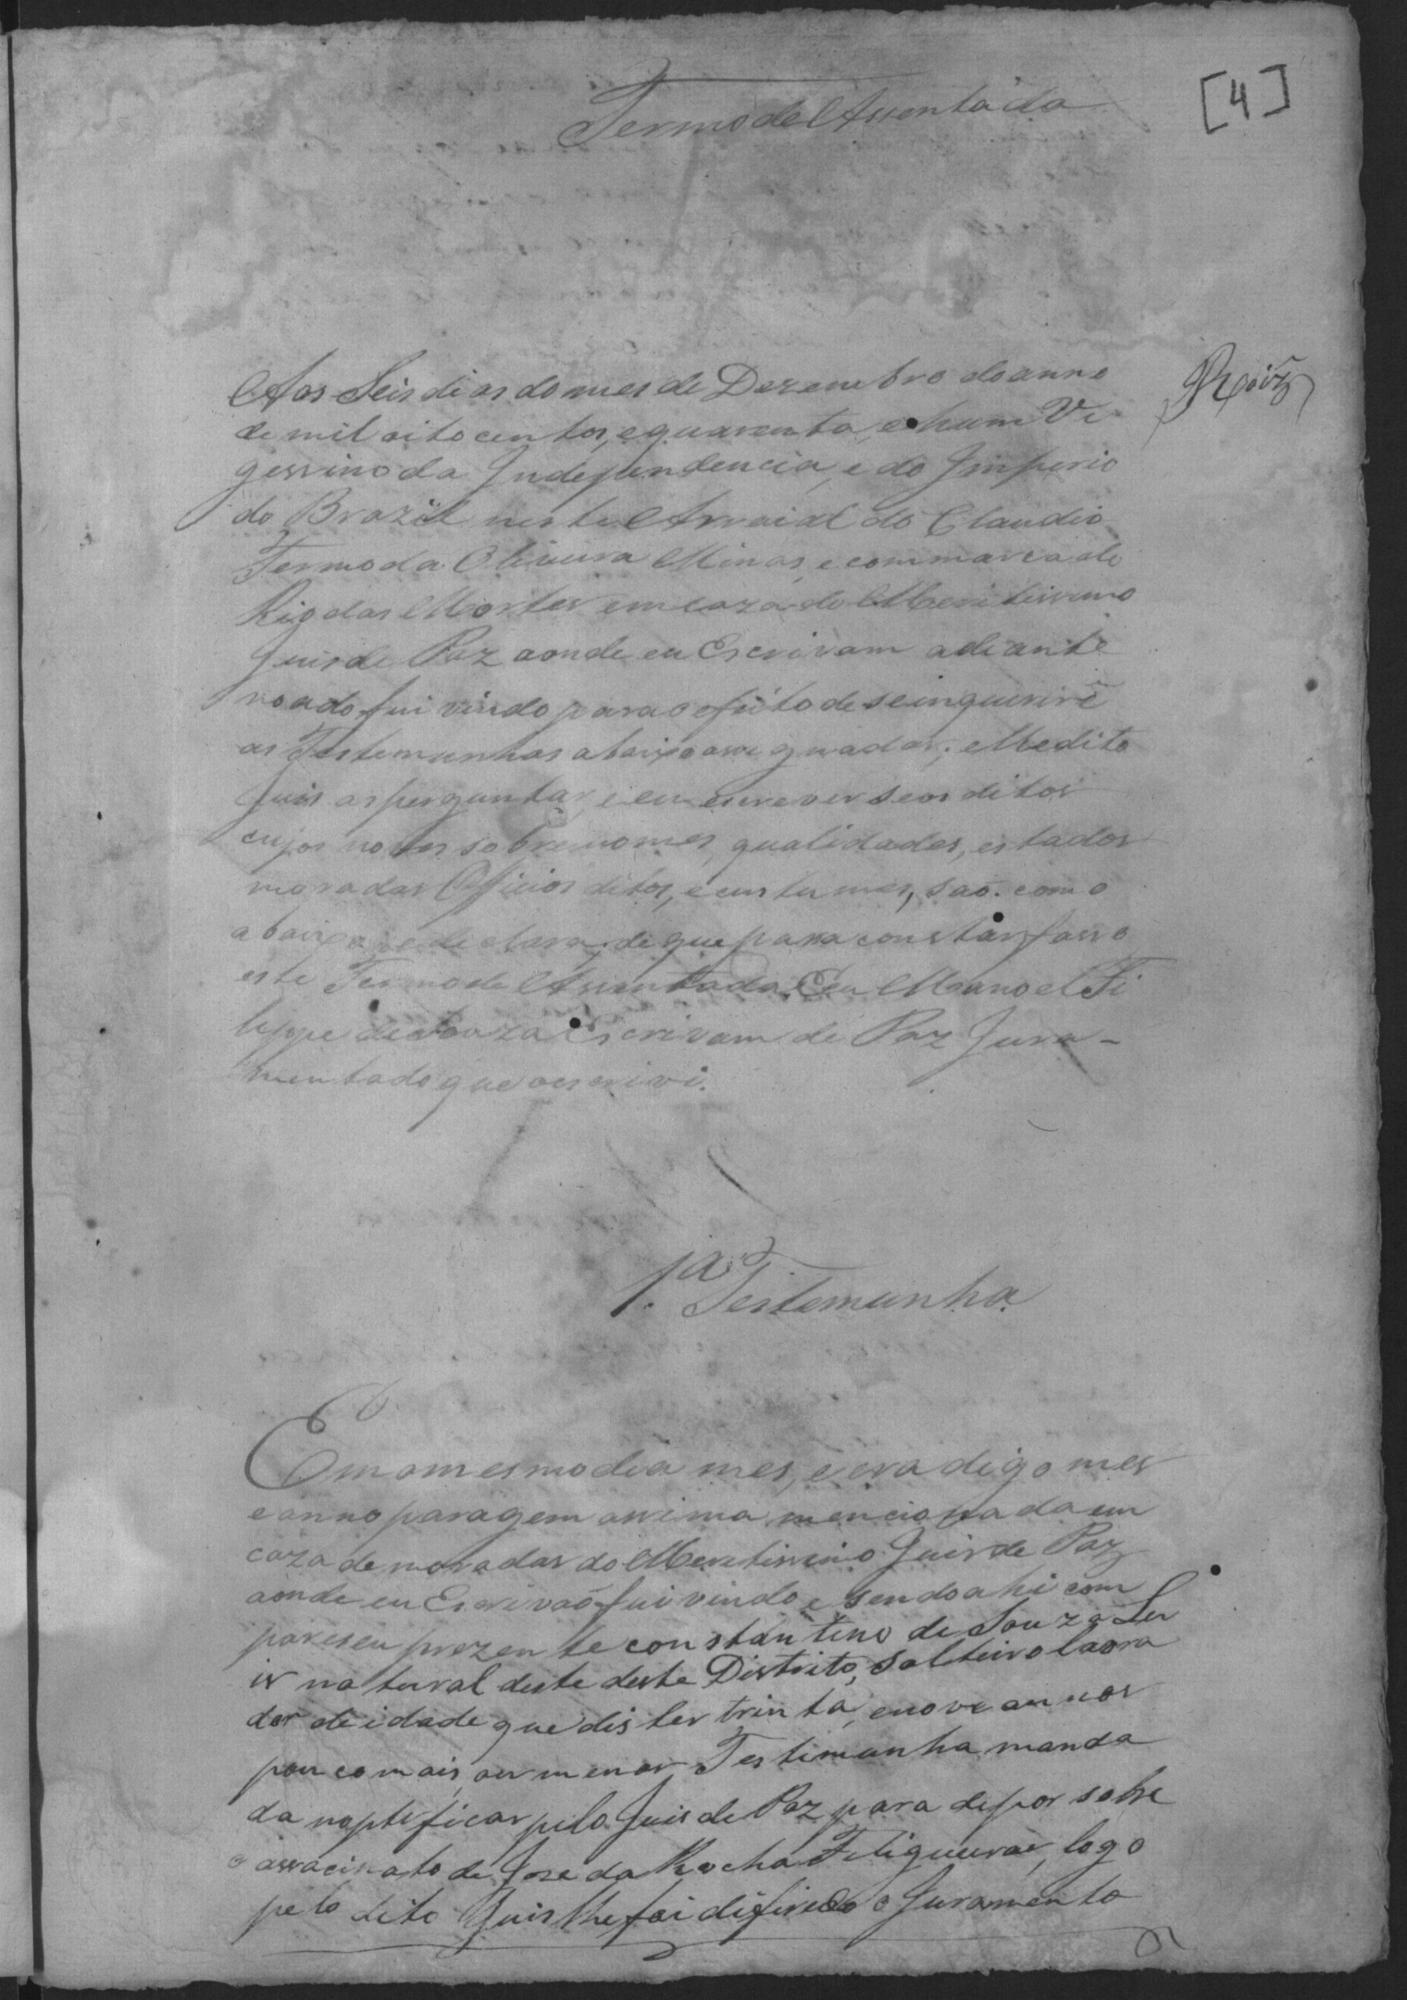 Termo de Assentada
[4]
Aos Seis dias do mes de Dezembro do anno
Roiz
de mil oito centos, e quarenta, e hum Vi
gessimo da Independencia, e do Imperio
do Brazil neste Arraial do Claudio
Termo da Oliveira Minas, e commarca do
Rio das Mortes em caza do Meritissimo
Juis de Paz aonde eu Escrivam adiante
noado fui vindo para o efeito de se inquerire
as Testemunhas abaixo asignadas, e
Juis as perguntar, e eu escrever seos ditos
cujos nomes sobrenomes, qualidades, estados
moradas Officios ditos, e custumes, saõ como
abaixo se declara, de que para constar fasso
este Termo de Assentada. Eu Manoel Fi
lippe de Souza Escrivam de Paz Jura-
mentado que o escrivi.
1.ª Testemunha
Em o mesmo dia mes, e era digo mes
e anno paragem assima mencionada em
caza de moradas do Meretissimo Juis de Paz
aonde eu Escrivaõ fui vindo e sendo ahi com
pareseu prezente constantino de Souza
natural deste deste Distrito, Solteiro lavra
dor de idade que dis ter trinta, e nove annos
pouco mais, ou menos, Testimunha manda
da noptificar pelo Juis de Paz para depor sobre
o assacinato de Jose da Rocha Filgueiras, logo
pelo dito Juis lhe foi difirido o Juramento